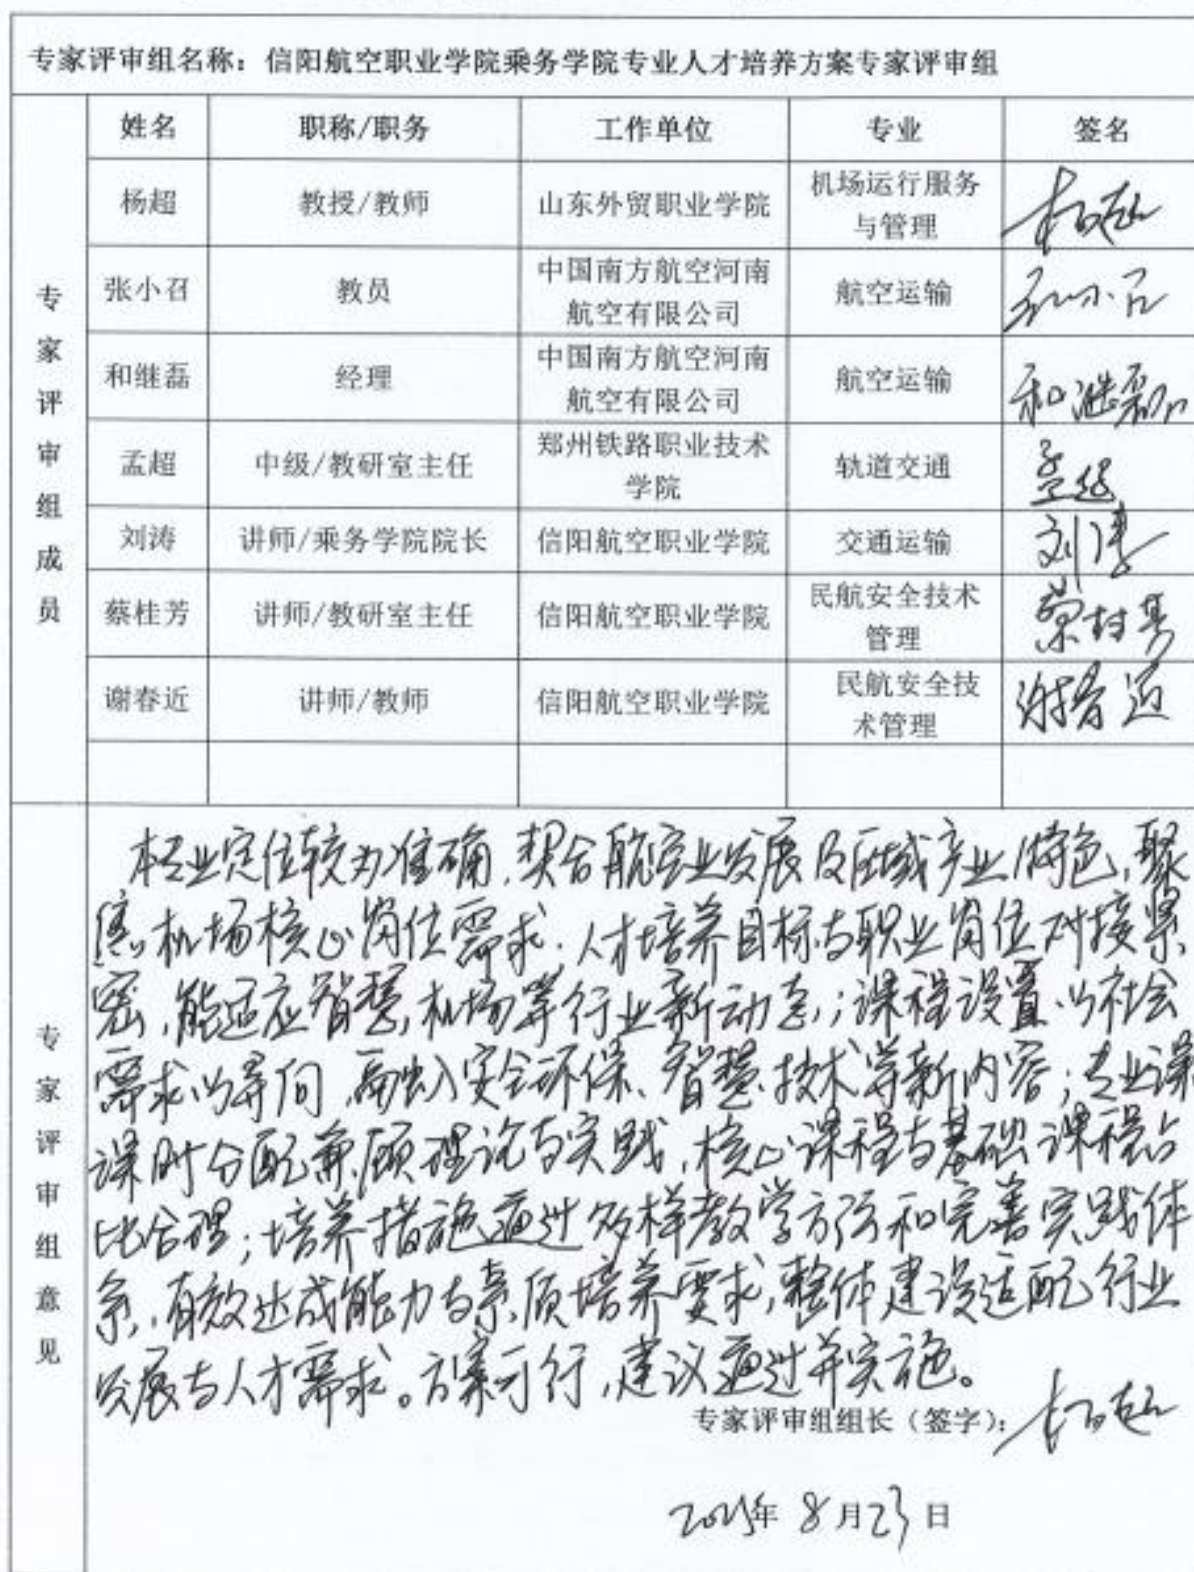 专家评审组名称：信阳航空职业学院乘务学院专业人才培养方案专家评审组
专家评审组成员
姓名 职称/职务 工作单位 专业 签名
杨超 教授/教师 山东外贸职业学院 机场运行服务与管理 杨超
张小召 教员 中国南方航空河南航空有限公司 航空运输 张小召
和继磊 经理 中国南方航空河南航空有限公司 航空运输 和继磊
孟超 中级/教研室主任 郑州铁路职业技术学院 轨道交通 孟超
刘涛 讲师/乘务学院院长 信阳航空职业学院 交通运输 刘涛
蔡桂芳 讲师/教研室主任 信阳航空职业学院 民航安全技术管理
谢春近 讲师/教师 信阳航空职业学院 民航安全技术管理 谢春近
专家评审组意见
本专业定位较为准确，契合航空业发展及区域产业特色，聚
焦机场核心岗位需求，人才培养目标与职业岗位对接紧
密，能适应智慧机场等行业新动态；课程设置以社会
需求为导向，融入安全环保、智慧技术等新内容；专业课
课时分配兼顾理论与实践，核心课程与基础课程占
比合理；培养措施通过多样教学方式和完善实践体
系，有效达成能力与素质培养要求，整体建设适配行业
发展与人才需求。方案可行，建议通过并实施。
专家评审组组长（签字）：杨超
2025年 8月23日